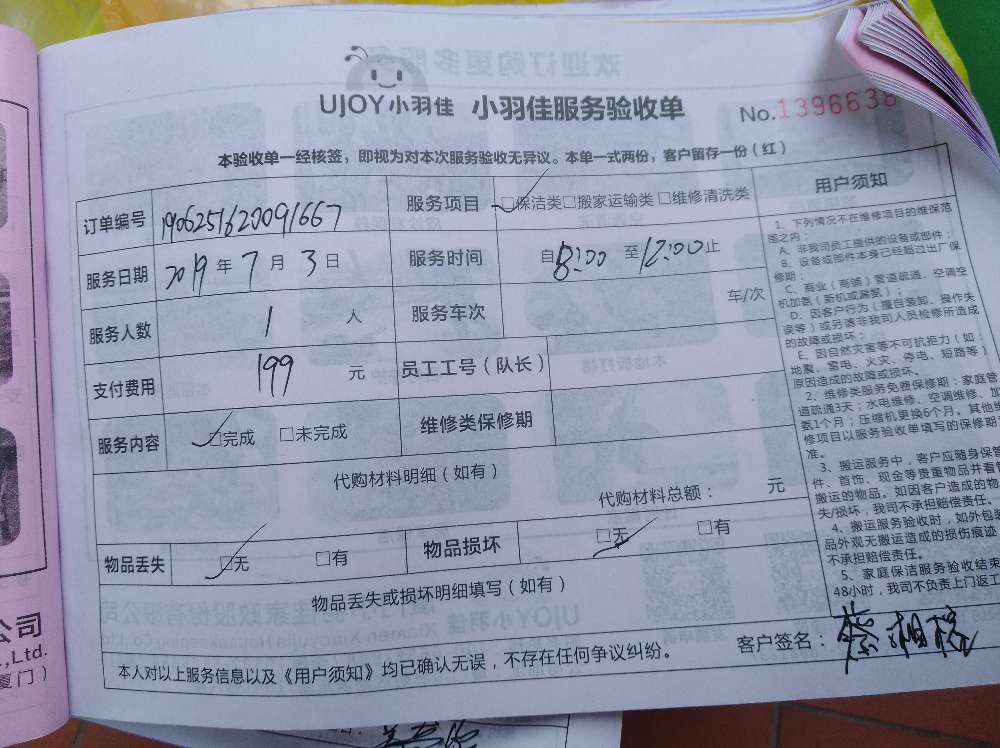 UJOY小羽佳 小羽佳服务验收单 No.1396638
本验收单一经核签，即视为对本次服务验收无异议。本单一式两份，客户留存一份（红）
订单编号 1906251620091667 服务项目 □保洁类□搬家运输类□维修清洗类
服务日期 2019年7月3日 服务时间 自8:00至12:00止
服务人数 1 人 服务车次 车/次
支付费用 199 元 员工工号（队长）
服务内容 □完成 □未完成 维修类保修期
代购材料明细（如有）
代购材料总额： 元
物品丢失 □无 □有 物品损坏 □无 □有
物品丢失或损坏明细填写（如有）
客户签名：
本人对以上服务信息以及《用户须知》均已确认无误，不存在任何争议纠纷。
用户须知
1、下列情况不在维修项目的维保范
围之内：
A、非我司员工提供的设备或部件；
B、设备或部件本身已经超过出厂保
修期；
C、商业（商铺）管道疏通、空调空
机加氨（新机或漏氨）；
D、因客户行为（擅自装卸、操作失
误等）或另请非我司人员检修所造成
的故障或损坏；
E、因自然灾害等不可抗拒力（如：
地震、雷电、火灾、停电、短路等）
原因造成的故障或损坏。
2、维修类服务免费保修期：家庭管
道疏通3天；水电维修、空调维修、加
氨1个月；压缩机更换6个月。其他维
修项目以服务验收单填写的保修期
准。
3、搬运服务中，客户应随身保管
件、首饰、现金等贵重物品并看管
搬运的物品。如因客户造成的物
失/损坏，我司不承担赔偿责任。
4、搬运服务验收时，如外包装
品外观无搬运造成的损伤痕迹
不承担赔偿责任。
5、家庭保洁服务验收结束
48小时，我司不负责上门返工
公司
.,Ltd.
厦门）